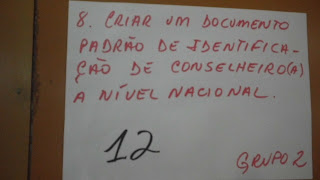 8. CRIAR UM DOCUMENTO
PADRÃO DE IDENTIFICA-
ÇÃO DE CONSELHEIRO(A)
A NÍVEL NACIONAL.
12
GRUPO 2